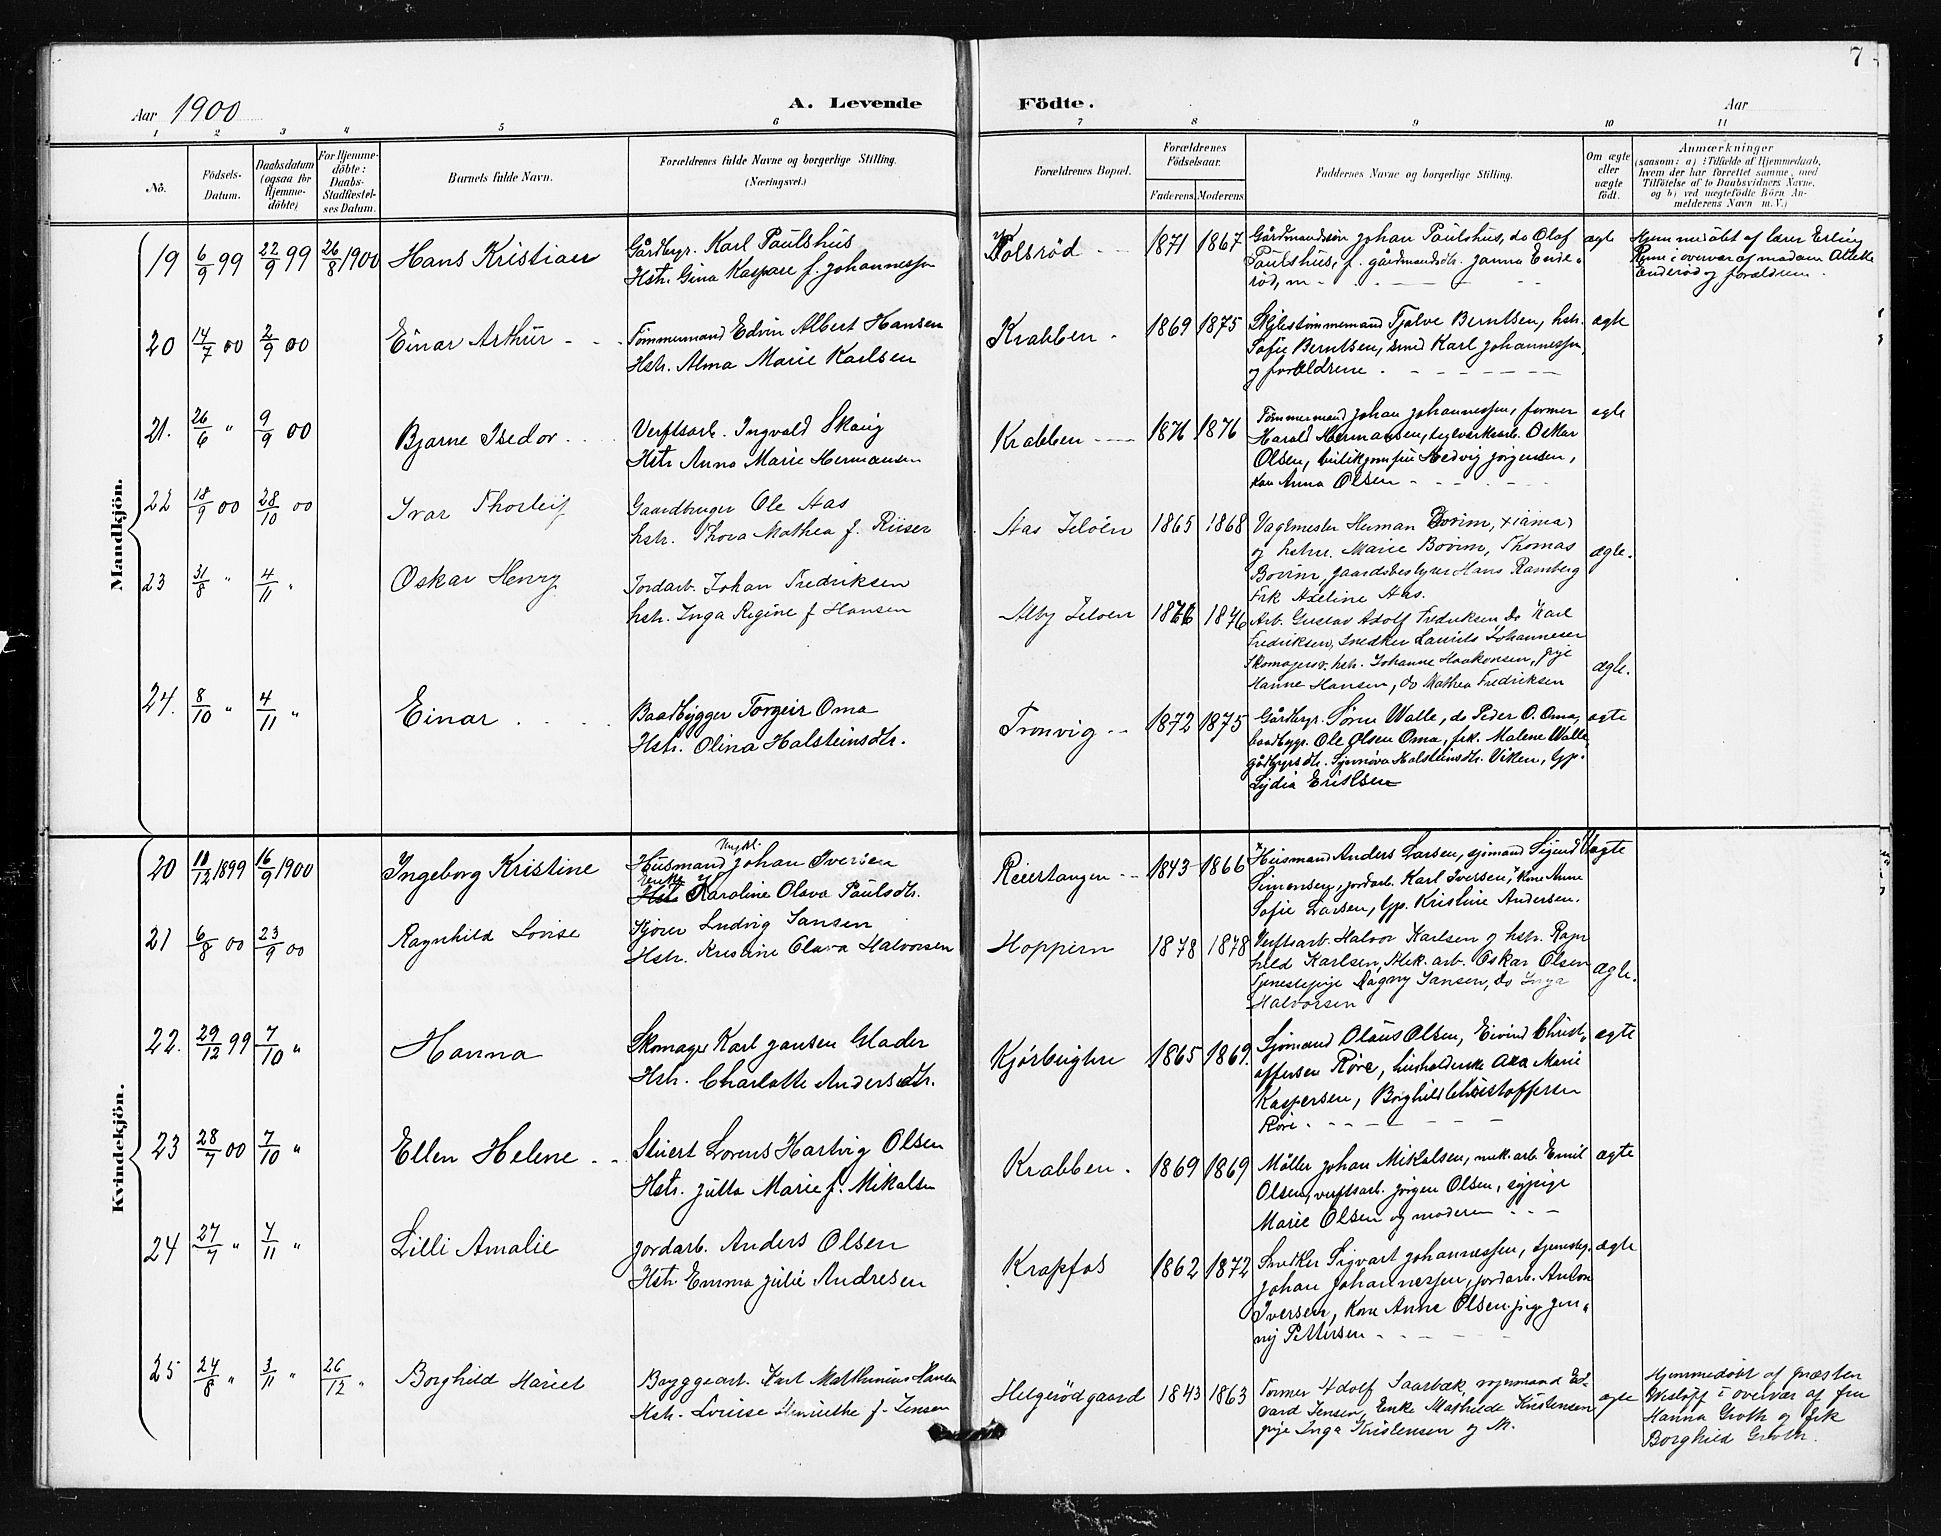 7
Aar 1900
A. Levende
Födte.
Aar
1 2 3 4 5 6 7 8 9 10 11
No.
Födsels-
Datum.
Daabsdatum
(ogsaa for
Hjemme-
döbte)
For Hjemme-
döbte:
Daabs-
Stadfæstel-
ses Datum.
Barnets fulde Navn.
Forældrenes fulde Navne og borgerlige Stilling.
(Næringsvei.)
Forældrenes Bopæl.
Forældrenes
Födselsaar.
Faderens. Moderens.
Faddernes Navne og borgerlige Stilling.
Om ægte
eller
uægte
födt.
Anmærkninger
(saasom: a) i Tilfælde af Hjemmedaab,
hvem der har forrettet samme, med
Tilföielse af to Daabsvidners Navne,
og b) ved uægtefödte Börn An-
melderens Navn m. V.)
Mandkjön.
19 6/9 99 22/9 99 26/8 1900 Hans Kristian
Gårdbgr. Karl Paulshus
Hstr. Gina Kaspare f. Johannessen
1871 1867
Gårdmandssøn Johan Paulshus, do Olaf
Paulshus, f. gårdmandsdtr. Janna Ende-
rød, m
ægte
Hjemmedøbt af lærer Erling
i overvær af madam
Enderød og forældrene.
20 14/7 00 2/9 00 Einar Arthur
Tømmermand Edvin Albert Hansen
Hstr. Alma Marie Karlsen
Krabben 1869 1875
Skibstømmermand Tjalve Berntsen, hstr.
Sofie Berntsen, smed Karl Johannessen,
og forældrene.
ægte
21. 26/6 " 9/9 00 Bjarne Isedor
Verftsarb. Ingvald Skaug
Hstr. Anna Marie Hermansen
Krabben 1871 1876
Tømmermand Johan Johannessen, former
Harald Hermansen, teglverksarb. Oskar
Olsen, butikjomfru Hedvig Jørgensen,
kone Anna Olsen
ægte
22 18/9 00 28/10 00 Ivar Thorleif
Gaardbruger Ole Aas
hstr. Thora Mathea f. Riiser
Aas Jeløen 1865 1868
Vagtmester Herman Bovim, xiania
og hstru. Marie Bovim, Thomas
Bovim, gaardsbestyrer Hans Ramberg
Frk Axeline Aas.
ægte.
23 31/8 " 4/11 " Oskar Henry
Jordarb. Johan Fredriksen
hstr. Inga Regine f. Hansen
Alby Jeløen 1876 1876
Arb. Gustav Adolf Fredriksen, do Karl
Fredriksen, Snedker Laurits Johannesen
hstr. Johanne Haakonsen, pige
Hanne Hansen, do Mathea Fredriksen
ægte.
24. 8/10 " 4/11 " Einar
Baadbygger Torgeir Oma
Hstr. Olina Halsteinsdtr.
Tronvig 1872 1875
Gårdbgr. Søren Walle, do Peder O. Oma,
baadbygr. Ole Olsen Oma, frk. Malene Walle,
gårdbgrsdtr. Synnøva Halsteinsdtr. Viken, Gp.
Lydia Eriksen
ægte
Kvindekjön.
20 18/12 1899 16/9 1900 Ingeborg Kristine
Ungkl.
Husmand Johan Iversen
Enke
Hstr. Karoline Olava Paulsdtr.
Reiertangen 1843 1866
Husmand Anders Larsen, sjømand
Simensen, jordarb. Karl Iversen, Kone Anne
Sofie Larsen, Gp. Kristine Andersen.
ægte
21 6/8 00 23/9 00 Ragnhild Lovise
Kjører Ludvig Jansen
Hstr. Kristine Olava Halvorsen
Hoppern 1878 1878
Verftsarb. Halvor Karlsen og hstr. Ragn
hild Karlsen, Mek. arb. Oskar Olsen
Tjenestepige Dagny Jansen, do Inga
Halvorsen
ægte.
22. 29/12 99 7/10 " Hanna
Skomager Karl Jansen Glader
Hstr. Charlotte Andersdtr.
1865 1869.
Sjømand Olaus Olsen, Eivind Christ-
offersen Røre, husholderske Axa Marie
Kaspersen, Borghild Christoffersen
Røre
ægte
23 28/7 00 7/10 " Ellen Helene
Stuert Lorens Hartvig Olsen
Hstr. Jutta Marie f. Mikalsen
Krabben 1869 1869
Møller Johan Mikalsen, mek. arb. Emil
Olsen, verftsarb. Jørgen Olsen, sypige
Marie Olsen og moderen
ægte
24 27/7 " 4/11 " Lilli Amalie
Jordarb. Anders Olsen
Hstr. Emma Julie Andresen
Krapfos 1862 1872
Snedker Sigvart Johannessen,
Johan Johannessen, jordarb. Anton
Iversen, Kone Anne Olsen. pige Jen-
ny Pettersen
ægte
25 24/8 " 3/11 " 26/12 " Borghild Hariet
Byggearb. Karl Mathinius Hansen
Hstr. Lovise Henriethe f. Jensen
Helgerødgaard 1843 1863
Former Adolf Saarbæk, Ed-
vard Jensen, Enke Mathilde Kristensen
pige Inga Kristensen og M.
ægte
Hjemmedøbt af Præsten
i overvær af fru
Hanna Groth og frk
Borghild Groth.